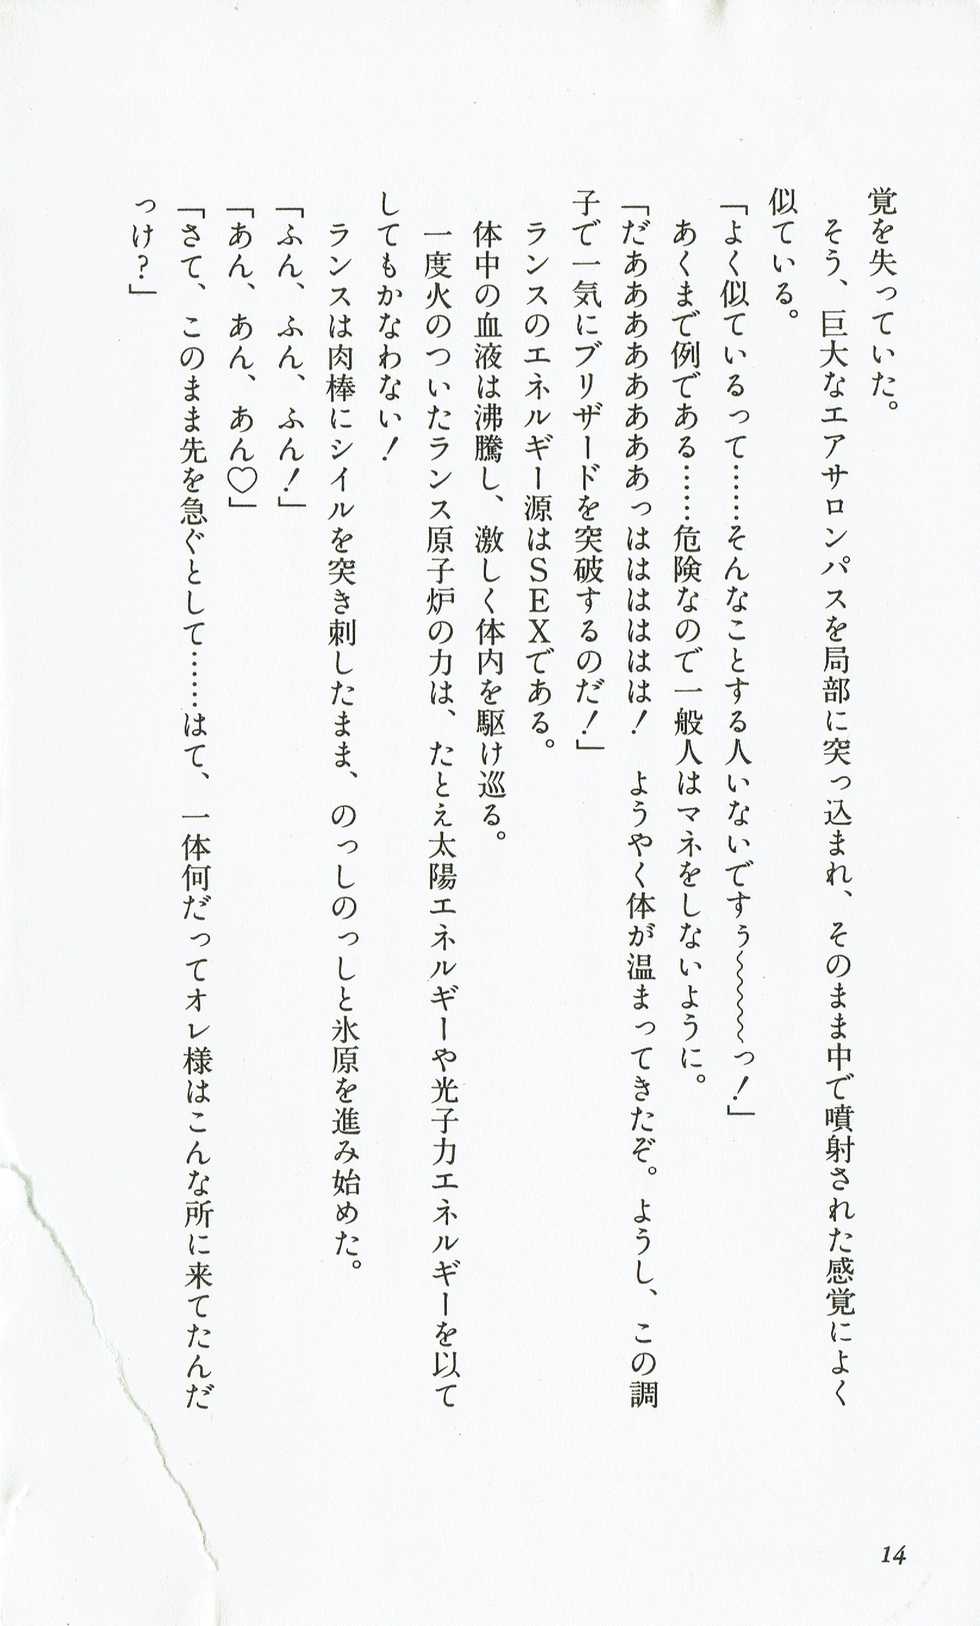 覚を失っていた。
そう、巨大なエアサロンパスを局部に突っ込まれ、そのまま中で噴射された感覚によく
似ている。
「よく似ているって……そんなことする人いないですぅ～～～～っ！」
あくまで例である……危険なので一般人はマネをしないように。
「だああああああああっはははははは！　ようやく体が温まってきたぞ。ようし、この調
子で一気にブリザードを突破するのだ！」
ランスのエネルギー源はＳＥＸである。
体中の血液は沸騰し、激しく体内を駆け巡る。
一度火のついたランス原子炉の力は、たとえ太陽エネルギーや光子力エネルギーを以て
してもかなわない！
ランスは肉棒にシイルを突き刺したまま、のっしのっしと氷原を進み始めた。
「ふん、ふん、ふん！」
「あん、あん、あん♡」
「さて、このまま先を急ぐとして……はて、一体何だってオレ様はこんな所に来てたんだ
っけ？」
14